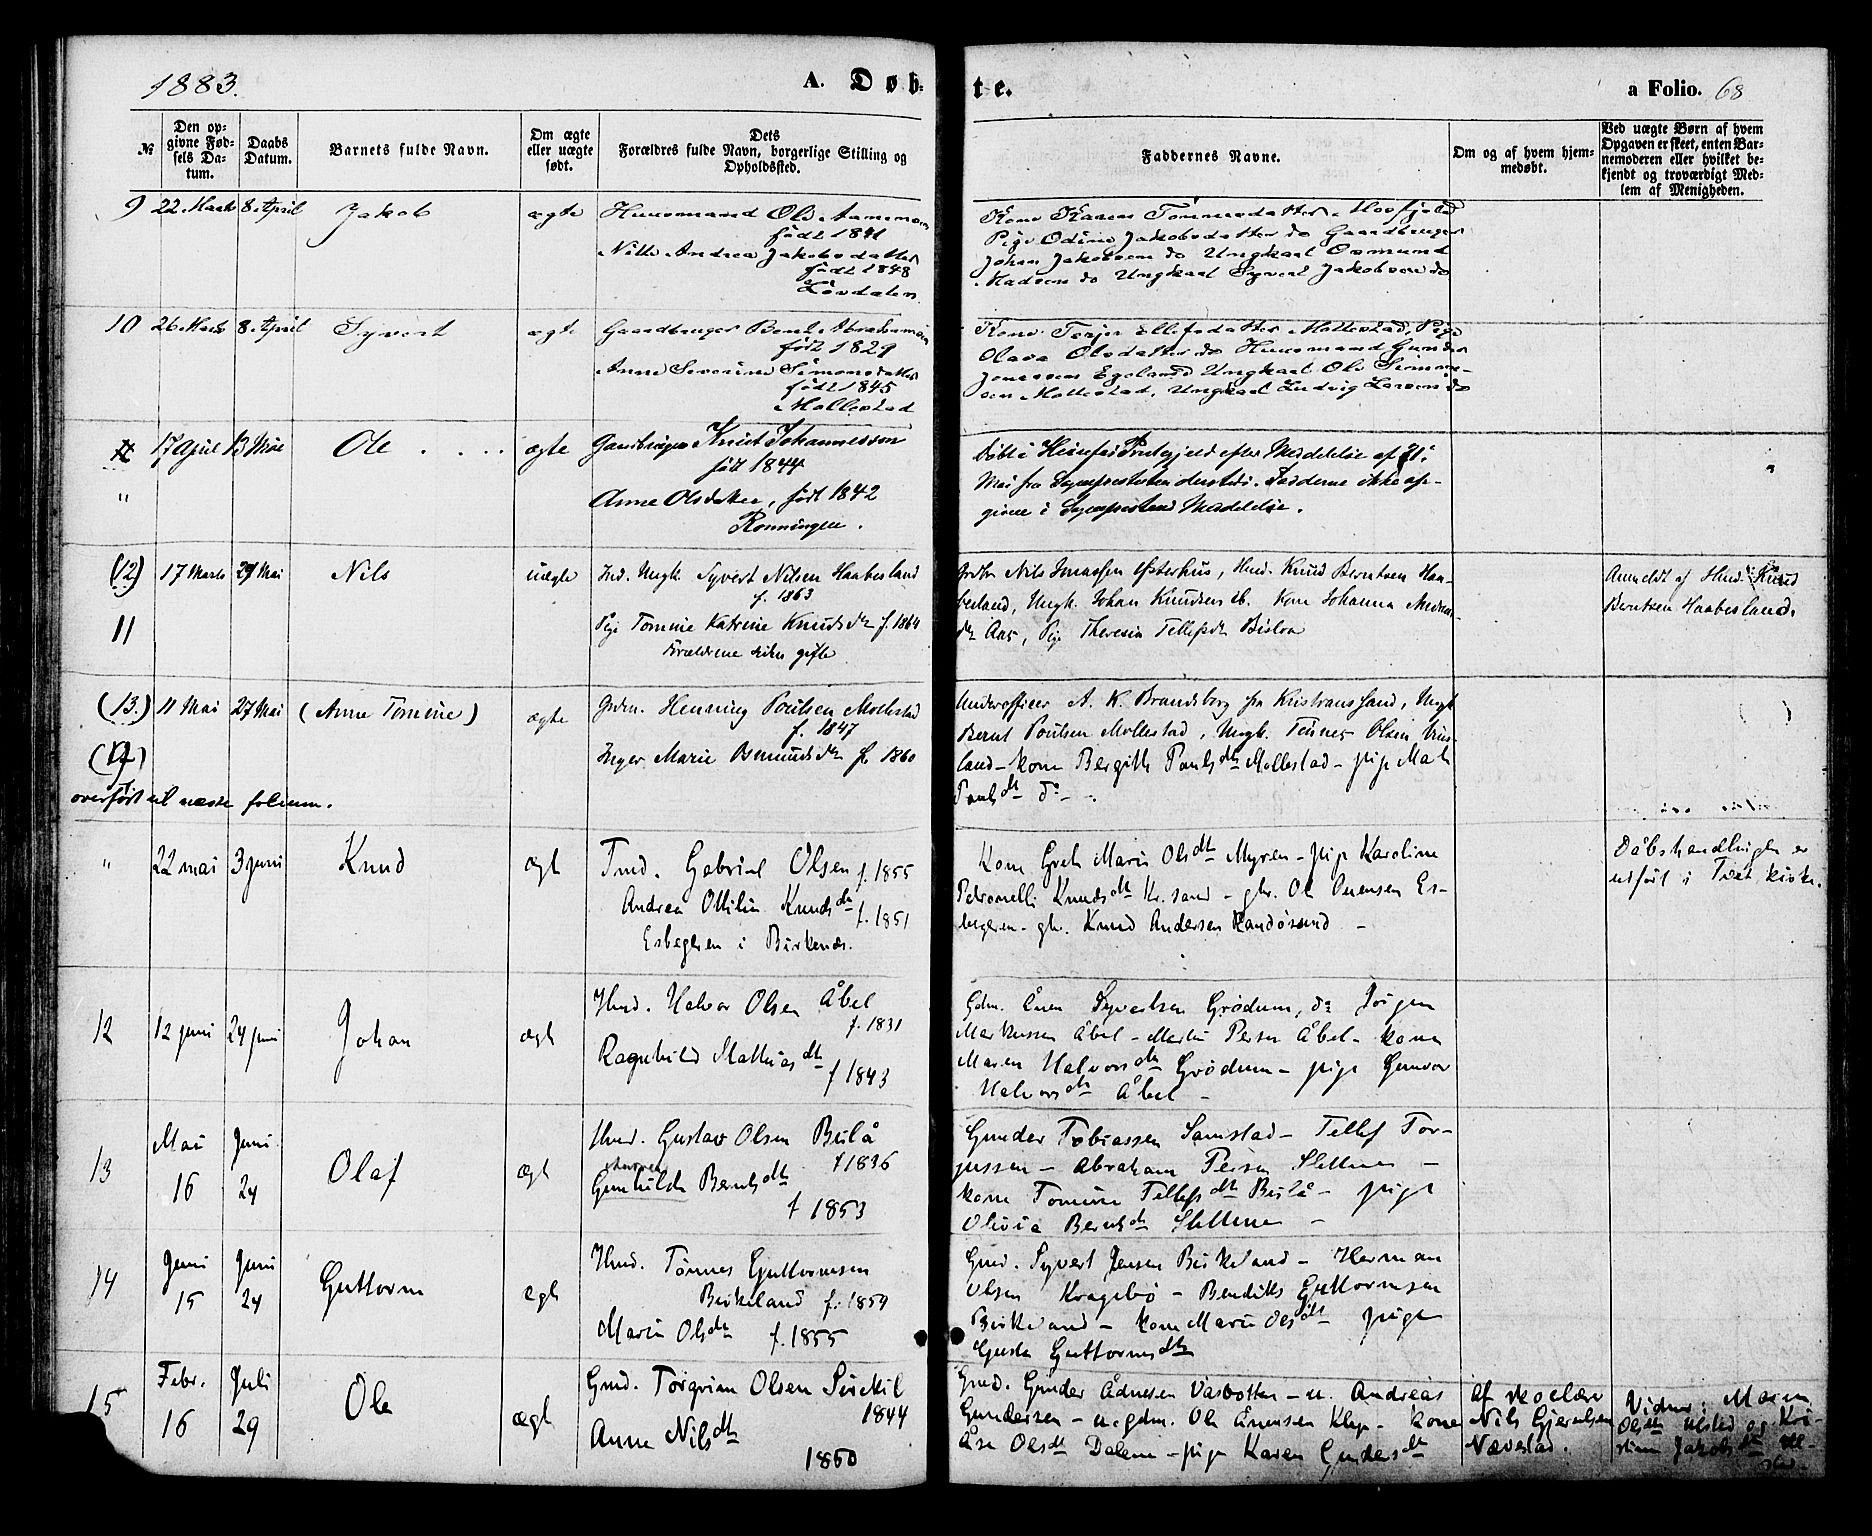 1883.
A. Døb-
te.
a Folio. 68
№
Den op-
givne Fød-
sels Da-
tum.
Daabs
Datum.
Barnets fulde Navn.
Om ægte
eller uægte
født.
Dets
Forældres fulde Navn, borgerlige Stilling og
Opholdssted.
Faddernes Navne.
Om og af hvem hjem-
medøbt.
Ved uægte Børn af hvem
Opgaven er skeet, enten Bar-
nemoderen eller hvilket be-
kjendt og troværdigt Med-
lem af Menigheden.
9 22 Marts 8. April Jakob ægte Huusmand Ole
født 1841
Andrea Jakobsdatter
født 1848
Løvdalen
Kone Karen Tommesdatter
Pige Odine Jakobsdatter do Gaardbruger
Johan Jakobsen do Ungkarl Osmund
Madsen do Ungkarl Syvert Jakobsen do
10 26 Marts 8. April Syvert ægte Gaardbruger Bent Abrahamsen
født 1829
Anne Severine Simonsdatter
født 1845
Mollestad
Kone Terjer Ellefsdatter Mollestad, Pige
Olava Olsdatter do Huusmand Gunder
Jonassen Egeland Ungkarl Ole Simon-
sen Mollestad, Ungkarl Ludvig Larsen do
17 April 13 Mai Ole . . . . ægte Gaardbruger Knud Johannesson
født 1844
" Anne Olsdatter, født 1842
Rønningen.
Døbt i Præstegjeld efter Meddelelse af 21.
Mai fra Sognepræsten dersteds. Fadderne ikke op-
givne i Sognepræstens Meddelelse.
(12) 17 Marts 27 Mai Nils uægte Ind. Ungk. Syvert Nilsen Haabesland
f. 1863
11 Pige Tomine Katrine Knudsdtr f. 1864
Forældrene siden gifte
Nils Jonassen Østerhus, Hmd. Knud Berntsen Haa-
besland, Ungk. Johan Knudsen ib. Kone Johanna
dtr Aas, Pige Theresia Tellefsdtr Bislaa
Anmeldt af Hmd. Knud
Berntsen Haabesland.
(13.) 11 Mai 27 Mai (Anne Tomine) ægte Grdm. Henning Poulsen Mollestad
f. 1847
Inger Marie Osmundsdtr f. 1860
overført til næste folium.
Underofficer A. K. Brandsborg fra Kristianssand, Ungk
Bernt Poulsen Mollestad, Ungk. Tønnes Olsen
land – kone Bergitte Poulsdtr Mollestad – pige
Poulsdtr do –
" 22 mai 3 juni Knud ægt Gabriel Olsen f. 1855
Andrea Ottilia Knudsdtr f. 1851
Esbegeren i Birkenæs.
Kone Grete Marie Olsdtr Myren – pige Karoline
Petronelli Knudsdtr Kr.sand – gbr. Ole Es-
begeren – gbr. Knud Andersen Randøsund –
Dåbshandlingen er
udført i Tveit kirke.
12 12 juni 24 juni Johan ægt Hmd. Halvor Olsen Åbel
f. 1831
Ragnhild Mathiasdtr
f 1843
Gdm. Ånen Syvertsen Grødum, do Jørgen
Markussen Åbel – Martin Persen Åbel – kone
Maren Halvorsdtr Grødum – pige Gunvor
Halvorsdtr Åbel –
13 Mai 16 Juni 24 Olaf ægt Hmd. Gustav Olsen Bislå
f 1836
Gunhilde Berntsdtr
f 1853
Gunder Tobiassen Samstad – Tellef Tor-
jussen – Abraham Persen Slettene –
kone Tomine Tellefsdtr Bislå – pige
Olivia Berntsdtr Slettene –
14 Juni 15 Juni 24 Guttorm ægt Hmd. Tønnes Guttormsen
Birkeland f. 1859
Maria Olsdtr f. 1855
Gmd. Syvert Jensen Birkeland – Herman
Olsen Kragebø – Bendikt Guttormsen
Birkeland – kone Marie Olsdtr pige
Gusta Guttormsdtr
15 Febr. 16 Juli 29 Ole ægt Gmd. Torgrim Olsen
1844
Anne Nilsdtr
1850
Gmd. Gunder Ådnesen Vasbotten – u. Andreas
Gundersen – u. gdm. Ole Ånensen Klep – kone
Åse Olsdtr Dalene – pige Karen Gundersdtr
Af skolelær
Nils Gjerulsen
Nævestad.
Vidner: Maren
Olsdtr Ulsted og Kri-
stine Jakobsdtr Ul-